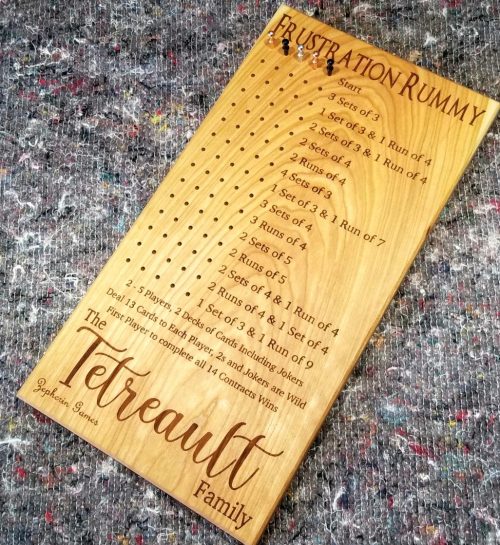 Frustration Rummy
Start
3 Sets of 3
1 Set of 3 & 1 Run of 4
2 Sets of 3 & 1 Run of 4
2 Sets of 4
2 Runs of 4
4 Sets of 3
1 Set of 3 & 1 Run of 7
3 Sets of 4
3 Runs of 4
2 Sets of 5
2 Runs of 5
2 Sets of 4 & 1 Run of 4
2 Runs of 4 & 1 Set of 4
1 Set of 3 & 1 Run of 9
2 - 5 Players, 2 Decks of Cards Including Jokers
Deal 13 Cards to Each Player, 2s and Jokers are Wild
First Player to complete all 14 Contracts Wins
The
Tetreault
Family
Zephram Games